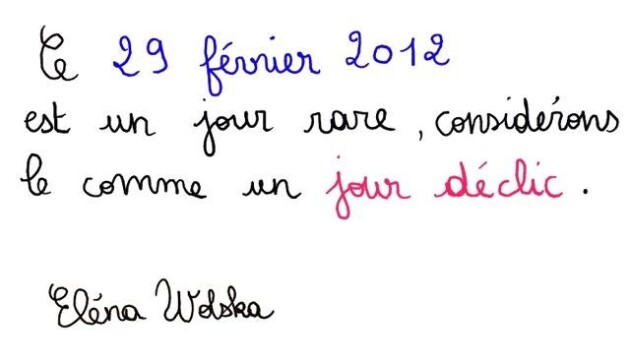 Ce 29 février 2012
est un jour rare, considérons
le comme un jour déclic.
Eléna Wolska